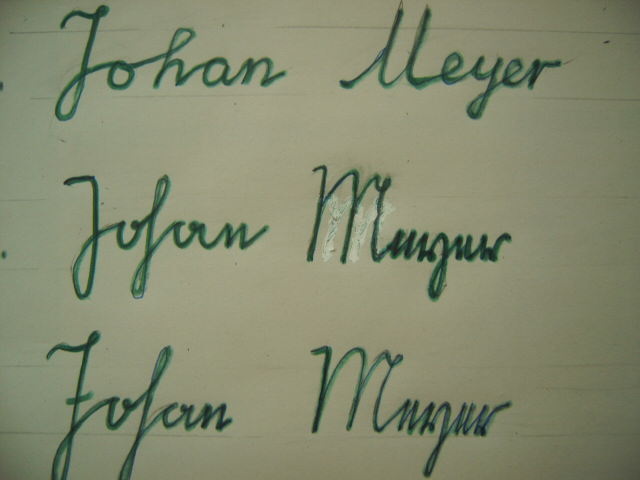 Johan Meyer
Johan Meyer
Johan Meyer